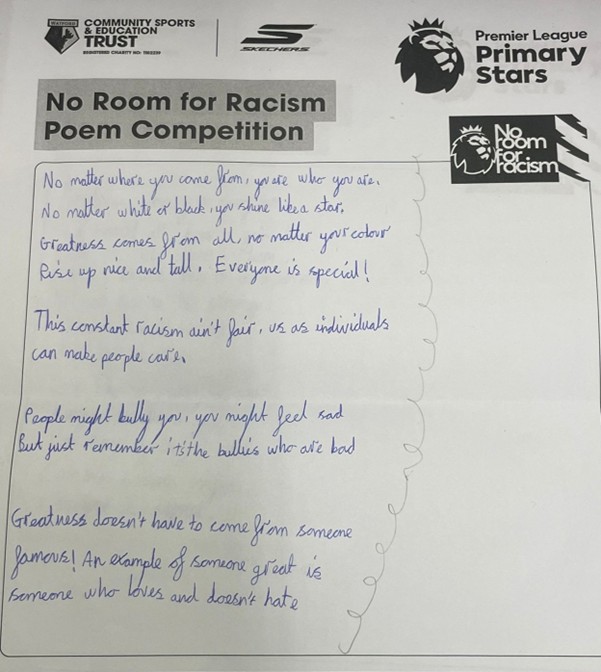 WATFORD
COMMUNITY SPORTS
& EDUCATION
TRUST
REGISTERED CHARITY NO: 1102239
SKECHERS
Premier League
Primary
Stars
No Room for Racism
Poem Competition
No room for racism
No matter where you come from, you're who you are.
No matter white or black, you shine like a star.
Greatness comes from all, no matter your colour
Rise up nice and tall. Everyone is special!
This constant racism ain't fair, us as individuals
can make people care.
People might bully you, you might feel sad
But just remember it's the bullies who are bad
Greatness doesn't have to come from someone
famous! An example of someone great is
someone who loves and doesn't hate